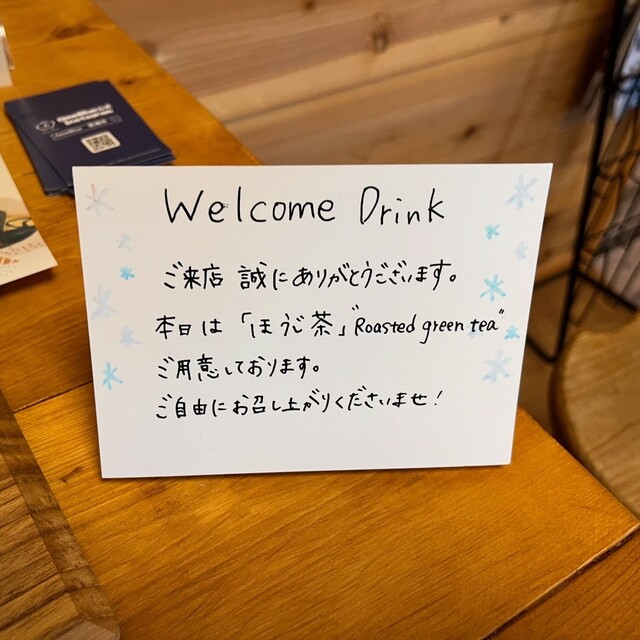 Welcome Drink
ご来店 誠にありがとうございます。
本日は「ほうじ茶」"Roasted green tea"
ご用意しております。
ご自由にお召し上がりくださいませ!